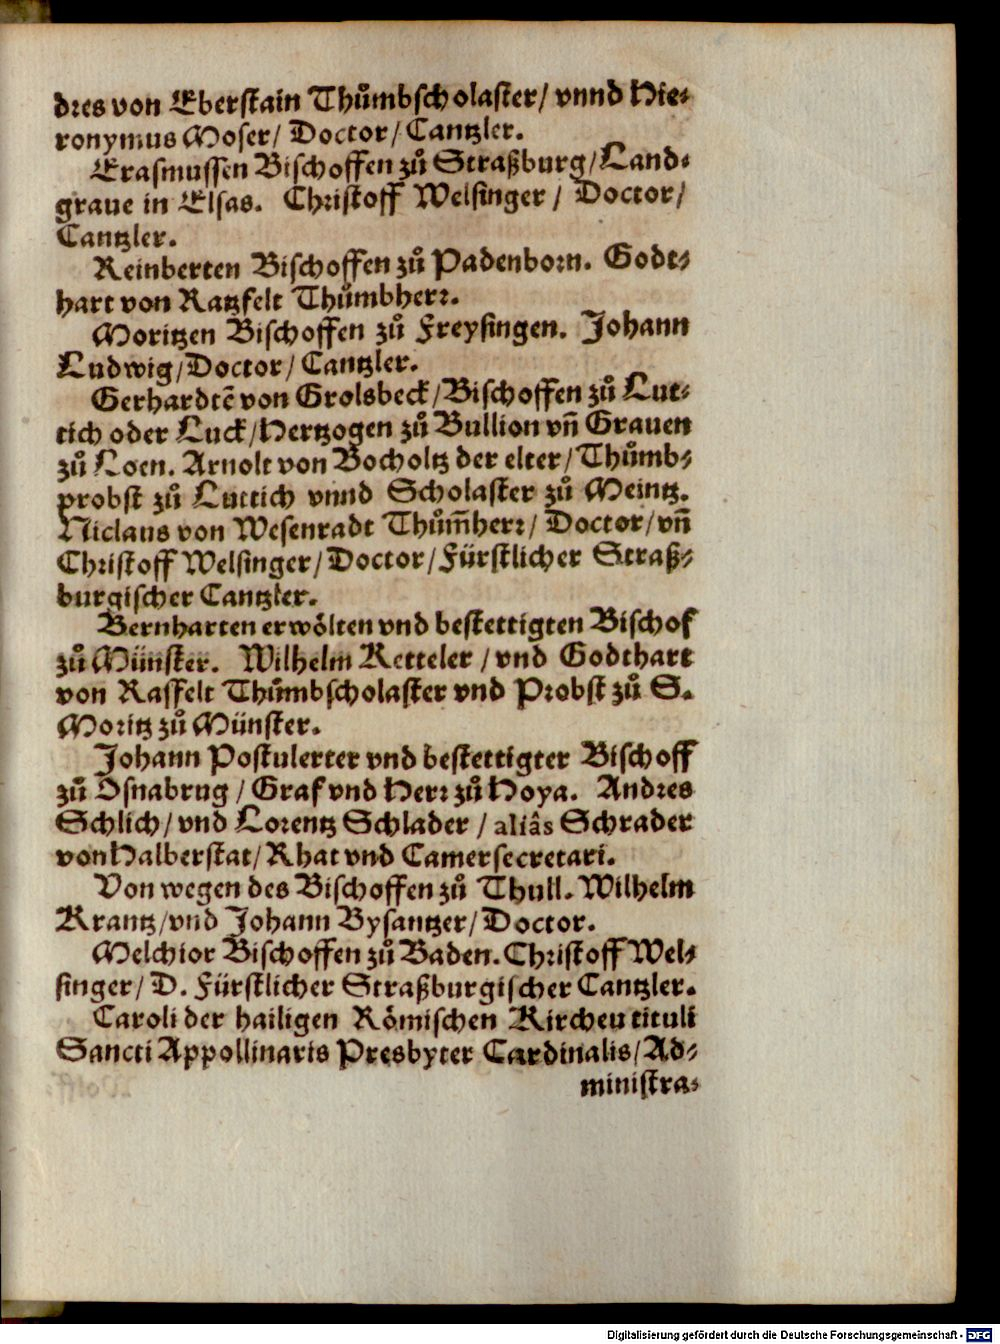 dres von Eberstain Thůmbscholaster/ vnnd Hie⸗
ronymus Moser/ Doctor/ Cantzler.
Erasmussen Bischoffen zů Straßburg/ Land⸗
graue in Elsas. Christoff Welsinger / Doctor/
Cantzler.
Reinberten Bischoffen zů Padenborn. Godt⸗
hart von Ratzfelt Thůmbherr.
Moritzen Bischoffen zů Freysingen. Johann
Ludwig/ Doctor/ Cantzler.
Gerhardtē von Grolsbeck/ Bischoffen zů Lut⸗
tich oder Luck/ Hertzogen zů Bullion vn̄ Grauen
zů Loen. Arnolt von Bocholtz der elter/ Thůmb⸗
probst zů Luttich vnnd Scholaster zů Meintz.
Niclaus von Wesenradt Thům̄herr/ Doctor/ vn̄
Christoff Welsinger/ Doctor/ Fürstlicher Straß⸗
burgischer Cantzler.
Bernharten erwölten vnd bestettigten Bischof
zů Münster. Wilhelm Ketteler / vnd Godthart
von Rasfelt Thůmbscholaster vnd Probst zů S.
Moritz zů Münster.
Johann Postulerter vnd bestettigter Bischoff
zů Osnabrug / Graf vnd Herr zů Hoya. Andres
Schlich/ vnd Lorentz Schlader / aliâs Schrader
von Halberstat/ Rhat vnd Camersecretari.
Von wegen des Bischoffen zů Thull. Wilhelm
Krantz/ vnd Johann Bysantzer/ Doctor.
Melchior Bischoffen zů Baden. Christoff Wel⸗
singer/ D. Fürstlicher Straßburgischer Cantzler.
Caroli der hailigen Römischen Kircheu tituli
Sancti Appollinaris Presbyter Cardinalis/ Ad⸗
ministra⸗
Digitalisierung gefördert durch die Deutsche Forschungsgemeinschaft - DFG